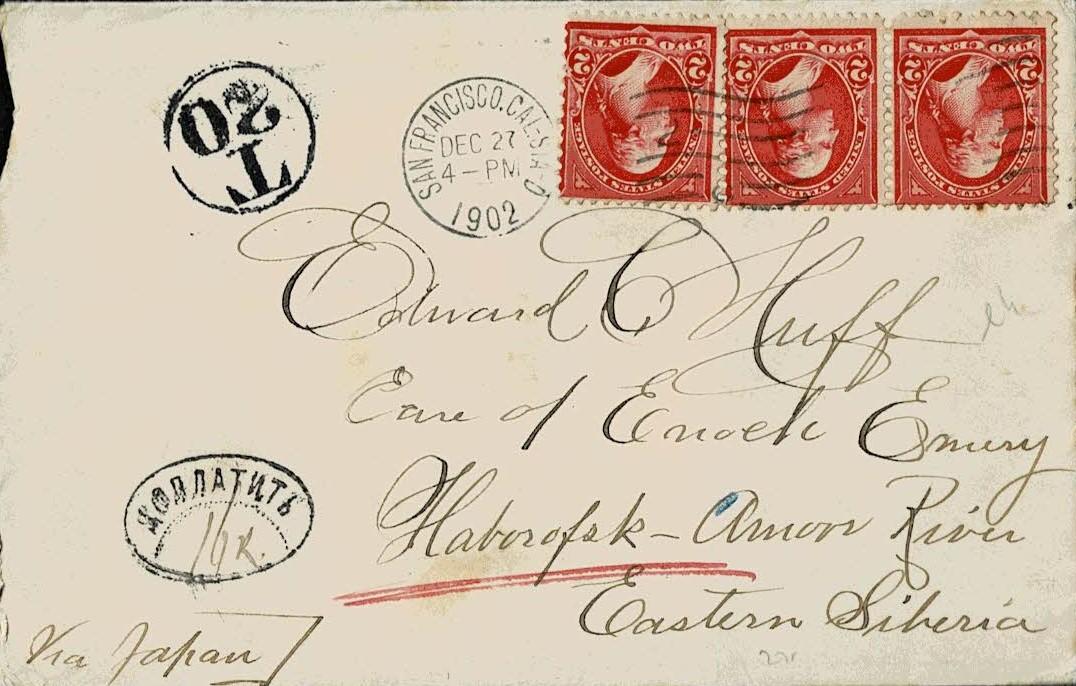 TWO CENTS
2 2
UNITED STATES POSTAGE
TWO CENTS
2 2
UNITED STATES POSTAGE
TWO CENTS
2 2
UNITED STATES POSTAGE
T
20
SAN FRANCISCO, CAL.
DEC 27
4-PM
1902
Edward C Huff
Care of Enoch Emery
Haborofsk - Amoor River
Eastern Siberia
ДОПЛАТИТЬ
16 к.
Via Japan